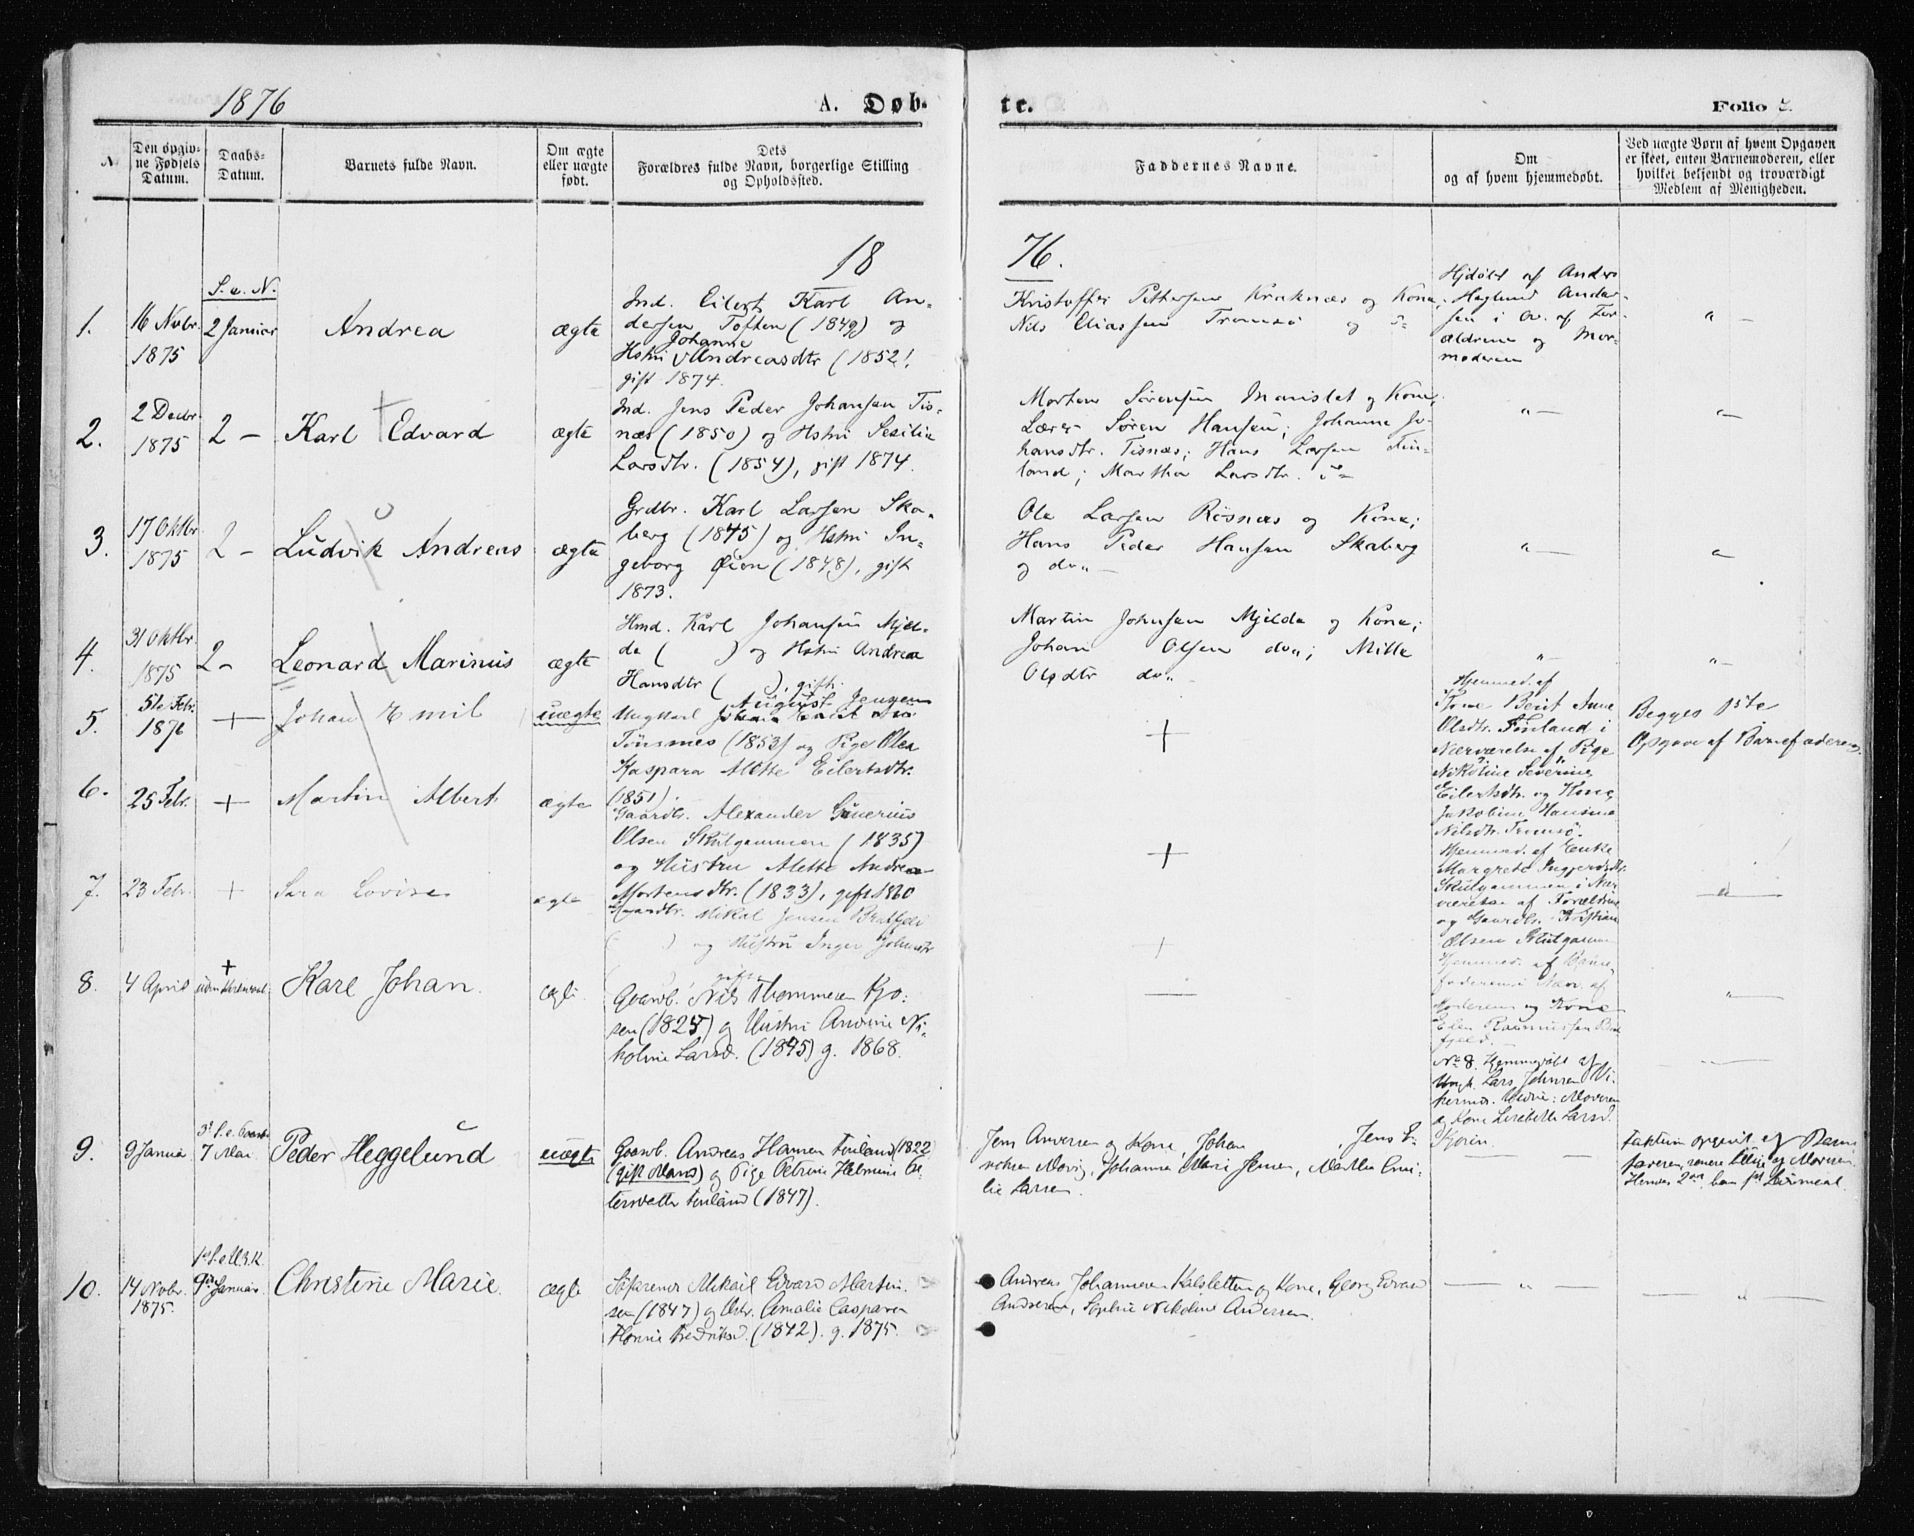 1876
A. Døb-
te.
Folio
N
Den opgiv-
ne Fødsels
Datum.
Daabs-
Datum.
Barnets fulde Navn.
Om ægte
eller uægte
født.
Dets
Forældres fulde Navn, borgerlige Stilling
og Opholdssted.
Faddernes Navne.
Om
og af hvem hjemmedøbt.
Ved uægte Børn af hvem Opgaven
er skeet, enten Barnemoderen, eller
hvilket bekjendt og troværdigt
Medlem af Menigheden.
18
76.
S. e. N.
1.
16 Novbr.
1875
2 Januar
Andrea
ægte
Ind. Eilert Karl An-
dersen Toften (1849) og
Johanne
Hstru Andreasdtr (1852!
gift 1874.
Kristoffer Pettersen Kraknæs og Kone,
Nils Eliassen Tromsø og
Hjdøbt af Anders
Heglund Ander-
sen i Ov. af For-
ældrene og Mor-
moderen
2.
2 Decbr.
1875
2 —
Karl Edvard
ægte
Ind. Jens Peder Johansen Tis-
næs (1850) og Hstru Sesilie
Larsdtr. (1854), gift 1874.
Morten Sørensen og Kone,
Lærer Søren Hansen; Johanne Jo-
hansdtr. Tisnæs; Hans Larsen Fin-
land; Martha Larsdtr.
3.
17 Oktbr.
1875
2 —
Ludvik Andreas
ægte
Grdbr. Karl Larsen Ska-
berg (1845) og Hstru In-
geborg Øien (1848), gift
1873.
Ole Larsen Risnæs og Kone;
Hans Peder Hansen Skaberg
og do„ —
4.
31 Oktbr.
1875
2 —
Leonard Marinus
ægte
Hmd. Karl Johansen Mjel-
de ( ) og Hstru Andrea
Hansdtr ( ), gift.
Martin Johnsen Mjelde og Kone;
Johan Olsen do„; Milla
Olsdtr do„
5.
5te Febr.
1876
+
Johan Emil
uægte
August Jensen
Ungkarl
Tønsnes (1853) og Pige Olea
Kaspara Alette Eilertsdtr.
(1851).
+
Hjemmed. af
Kone Berit Anne
Olsdtr. Finland i
Nærværelse af Pige
Nikoline Severine
Eilertsdtr. og Kone
Jakobine Hansine
Nilsdtr. Tromsø.
Begges 1ste
Opgave af Barnefaderen
6.
25 Febr.
+
Martin Albert
ægte
Gaardbr. Alexander
Olsen Skulgammen (1835)
og Hustru Alette Andrea
Mortensdtr. (1833), gift 1860
+
Hjemmed. af Enke
Margrete Ingjerdsdtr.
Skulgammen i Nær-
værelse af Forældrene
og Gaardbr. Kristian
Olsen Skulgamm
7.
23 Febr.
+
Sara Lovise
ægte
Gaardbr. Mikal Jensen
( ) og Hustru Inger Johnsdtr
gifte
+
Hjemmed. af Barne-
faderen i Nærv. af
Moderen og Kone
Elen Rasmussen
fjeld. —
8.
4 April
+
Karl Johan.
ægte
Gaardb. Nils Thommesen Kjo-
sen (1825) og Hustru Andrine Ni-
koline Larsd. (1845) g. 1868.
No 8. Hjemmedøbt af
Ungk. Lars Johnsen
Moderen
og Kone Lisebette Larsd.
Kjosen.
9.
9 Januar
7 Mai
Peder Heggelund
uægte
Gaardb. Andreas Hansen Finland (1822
(gift Mand) og Pige Petrine Helmine Pe-
tersdatter Finland (1847).
Jens Andersen og Kone, Johan , Jens E-
noksen Movig, Johanna Marie Jensen, Martha Emi-
lie Larsen.
Faktum opgivet af Barne
faderen, senere tillige og Moderen
Hendes 2det, hans 1ste Leiermaal.
10.
14 Novbr.
1875.
9de Januar
Christine Marie.
ægte
Mikal Edvard Martin-
sen (1847) og Hstr. Amalie Caspara
Hansine Fredriksd. (1842). g. 1875.
Andreas Johannesen Kalsletten og Kone, Georg Edvard
Andresen, Sophie Nikoline Andersen.